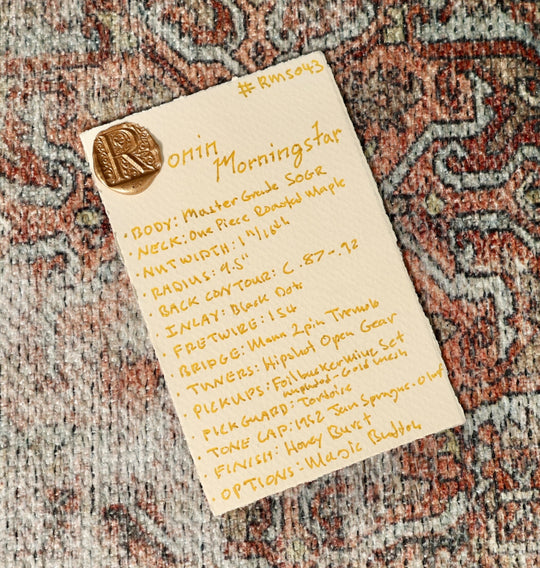 #RMS043
Ronin Morningstar
• BODY: Master Grade SOGR
• NECK: One Piece Roasted Maple
• NUT WIDTH: 1 11/16th
• RADIUS: 9.5"
• BACK CONTOUR: C .87-.92
• INLAY: Black Dots
• FRETWIRE: 154
• BRIDGE: Mann 2pin Trmolo
• TUNERS: Hipshot Open Gear
• PICKUPS: Foilbuckerking Set
unplated - Gold Mesh
• PICKGUARD: Tortoise
• TONE CAP: 1952 Jan Sprague .01uf
• FINISH: Honey Burst
• OPTIONS: Magic Button